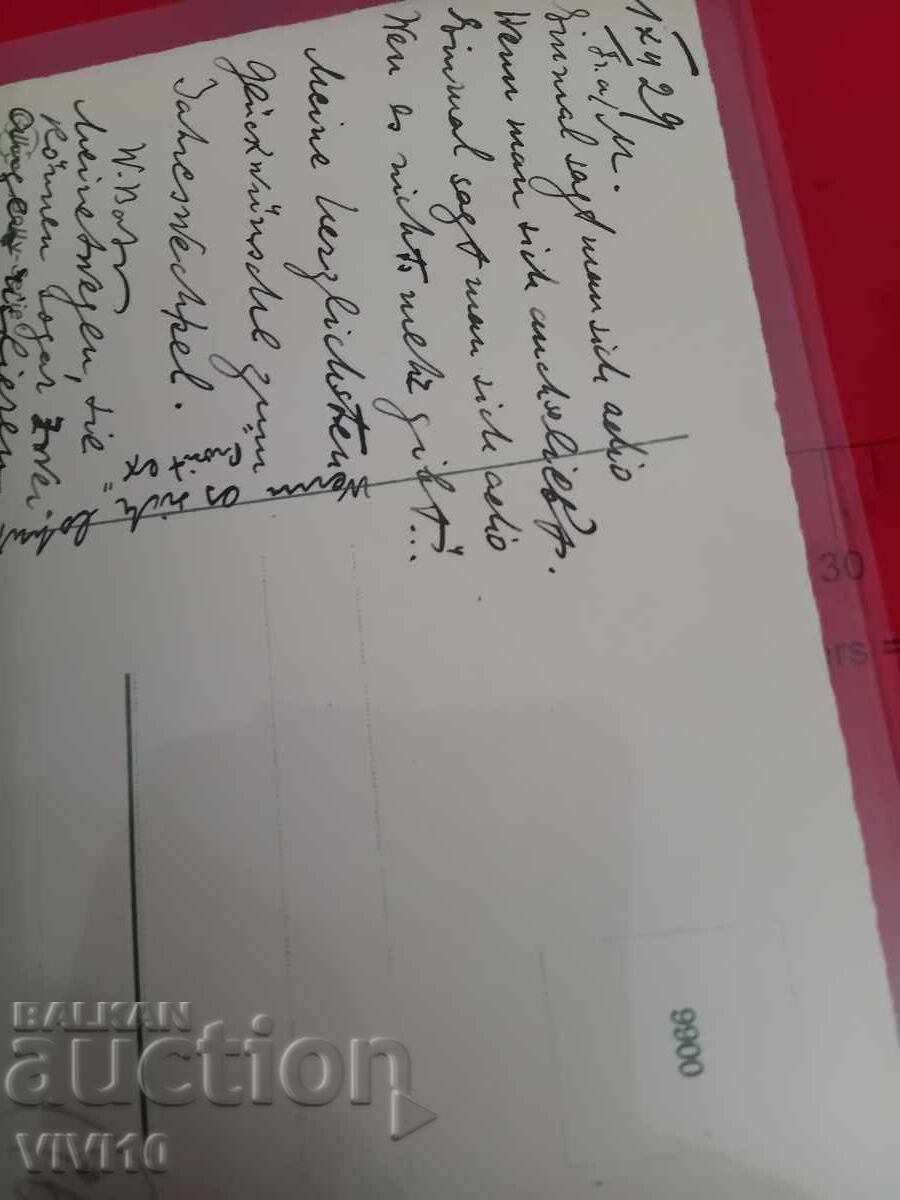 1 XII 29
Fr. a/M.
Einmal sagt man sich adio
Wenn man sich auch liebt.
Einmal sagt man sich adio
Wen es nichts mehr gibt"...
Meine herzlichsten
Glückwünsche zum
Jahreswechsel.
Meinetwegen, sie
können sogar zwei
wenn
es sich
30
ers =
0066
BALKAN
auction
VIVI10